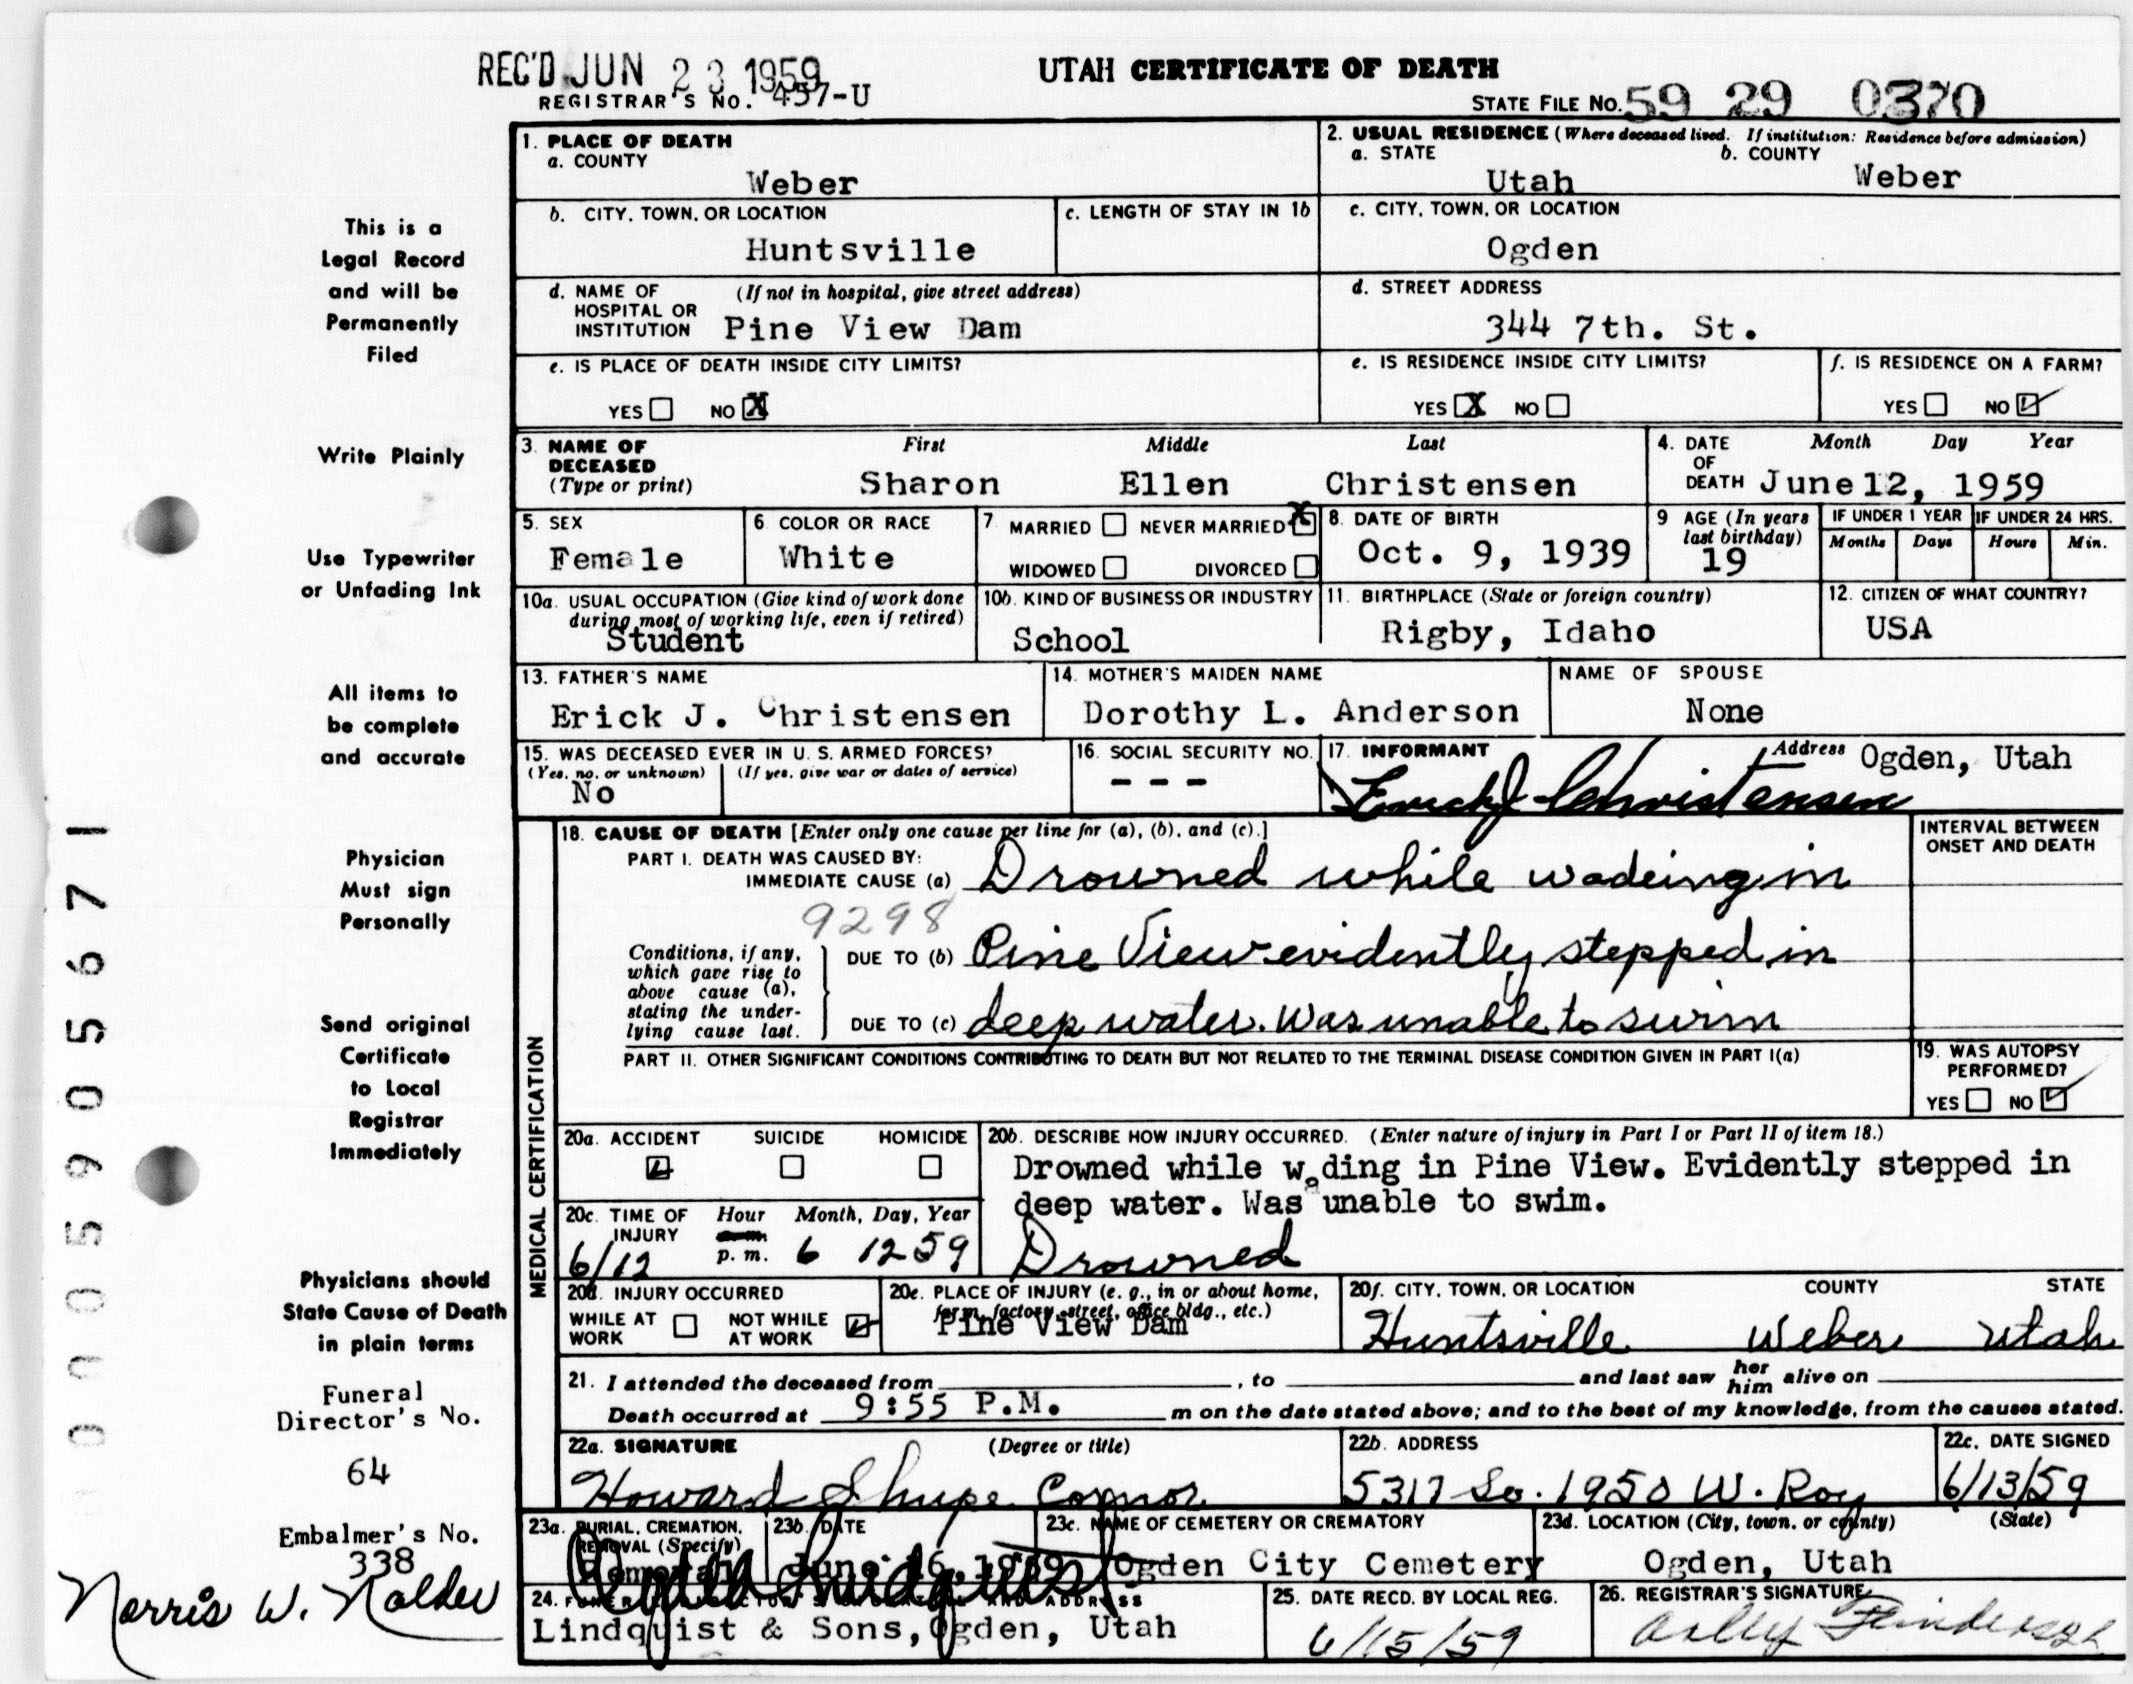 REC'D JUN 23 1959
UTAH CERTIFICATE OF DEATH
REGISTRAR'S NO. 457-U
STATE FILE NO. 59 29 0370
This is a
Legal Record
and will be
Permanently
Filed
Write Plainly
Use Typewriter
or Unfading Ink
All items to
be complete
and accurate
Physician
Must sign
Personally
Send original
Certificate
to Local
Registrar
Immediately
Physicians should
State Cause of Death
in plain terms
Funeral
Director's No.
64
Embalmer's No.
338
Norris W. Nalder
0005905671
1. PLACE OF DEATH
a. COUNTY
Weber
2. USUAL RESIDENCE (Where deceased lived. If institution: Residence before admission)
a. STATE b. COUNTY
Utah Weber
b. CITY, TOWN, OR LOCATION
Huntsville
c. LENGTH OF STAY IN 1b
c. CITY, TOWN, OR LOCATION
Ogden
d. NAME OF (If not in hospital, give street address)
HOSPITAL OR
INSTITUTION Pine View Dam
d. STREET ADDRESS
344 7th. St.
e. IS PLACE OF DEATH INSIDE CITY LIMITS?
YES NO X
e. IS RESIDENCE INSIDE CITY LIMITS?
YES X NO
f. IS RESIDENCE ON A FARM?
YES NO
3. NAME OF First Middle Last
DECEASED
(Type or print) Sharon Ellen Christensen
4. DATE Month Day Year
OF
DEATH June 12, 1959
5. SEX
Female
6 COLOR OR RACE
White
7 MARRIED NEVER MARRIED X
WIDOWED DIVORCED
8. DATE OF BIRTH
Oct. 9, 1939
9 AGE (In years
last birthday)
19
IF UNDER 1 YEAR IF UNDER 24 HRS.
Months Days Hours Min.
10a. USUAL OCCUPATION (Give kind of work done
during most of working life, even if retired)
Student
10b. KIND OF BUSINESS OR INDUSTRY
School
11. BIRTHPLACE (State or foreign country)
Rigby, Idaho
12. CITIZEN OF WHAT COUNTRY?
USA
13. FATHER'S NAME
Erick J. Christensen
14. MOTHER'S MAIDEN NAME
Dorothy L. Anderson
NAME OF SPOUSE
None
15. WAS DECEASED EVER IN U. S. ARMED FORCES?
(Yes, no, or unknown) (If yes, give war or dates of service)
No
16. SOCIAL SECURITY NO.
- - -
17. INFORMANT Address Ogden, Utah
Erick J Christensen
MEDICAL CERTIFICATION
18. CAUSE OF DEATH [Enter only one cause per line for (a), (b), and (c).]
INTERVAL BETWEEN
ONSET AND DEATH
PART I. DEATH WAS CAUSED BY:
IMMEDIATE CAUSE (a) Drowned while wadeing in
9298
Conditions, if any,
which gave rise to
above cause (a),
stating the under-
lying cause last.
DUE TO (b) Pine View evidently stepped in
DUE TO (c) deep water. Was unable to swim
PART II. OTHER SIGNIFICANT CONDITIONS CONTRIBUTING TO DEATH BUT NOT RELATED TO THE TERMINAL DISEASE CONDITION GIVEN IN PART I(a)
19. WAS AUTOPSY
PERFORMED?
YES NO
20a. ACCIDENT SUICIDE HOMICIDE
20b. DESCRIBE HOW INJURY OCCURRED. (Enter nature of injury in Part I or Part II of item 18.)
Drowned while wading in Pine View. Evidently stepped in
deep water. Was unable to swim.
Drowned
20c. TIME OF Hour Month, Day, Year
INJURY a. m.
6/12 p. m. 6 12 59
20d. INJURY OCCURRED
WHILE AT NOT WHILE
WORK AT WORK
20e. PLACE OF INJURY (e. g., in or about home,
farm, factory, street, office bldg., etc.)
Pine View Dam
20f. CITY, TOWN, OR LOCATION COUNTY STATE
Huntsville Weber Utah
21. I attended the deceased from , to and last saw her him alive on
Death occurred at 9:55 P.M. m on the date stated above; and to the best of my knowledge, from the causes stated.
22a. SIGNATURE (Degree or title)
Howard Shupe Coronor
22b. ADDRESS
5317 So. 1950 W. Roy
22c. DATE SIGNED
6/13/59
23a. BURIAL, CREMATION,
REMOVAL (Specify)
23b. DATE
June 16, 1959
23c. NAME OF CEMETERY OR CREMATORY
Ogden City Cemetery
23d. LOCATION (City, town, or county) (State)
Ogden, Utah
24. FUNERAL DIRECTOR'S SIGNATURE AND ADDRESS
Lindquist & Sons, Ogden, Utah
25. DATE RECD. BY LOCAL REG.
6/15/59
26. REGISTRAR'S SIGNATURE